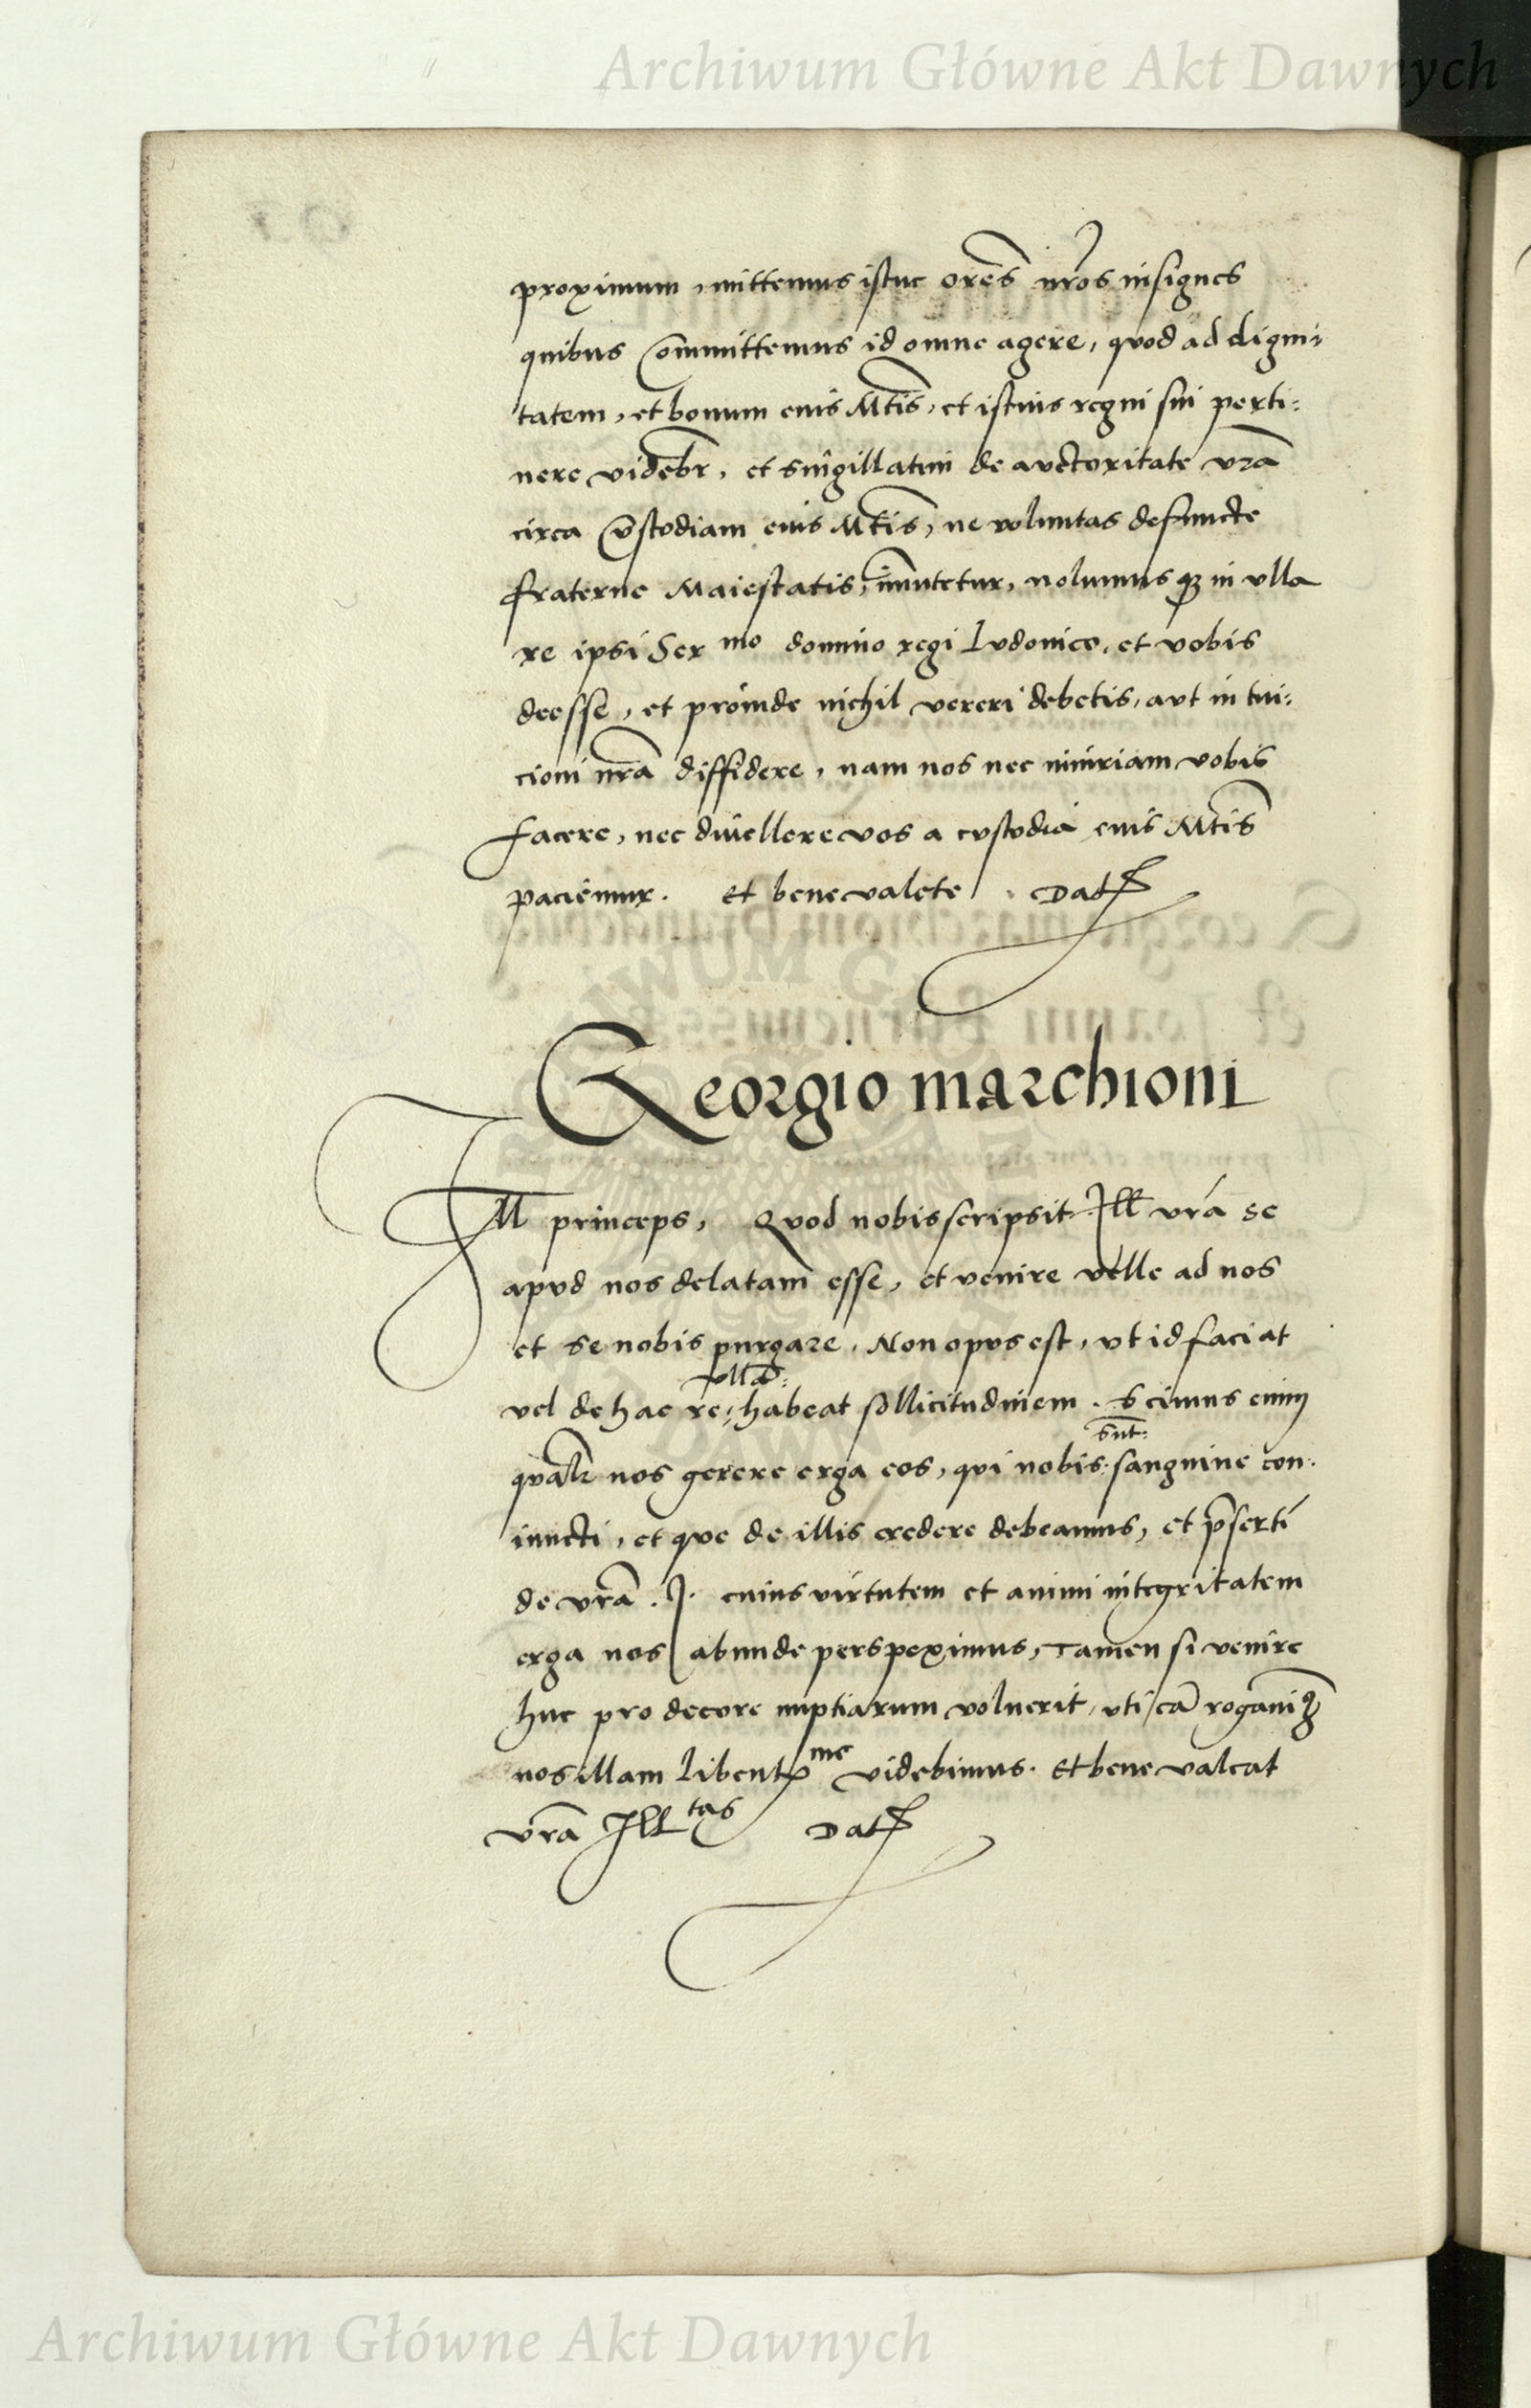 Archiwum Główne Akt Dawnych
proximum, mittemus istuc ores nros insignes
quibus committemus id omne agere, quod ad digni:
tatem, et bonum eius Mtis, et istius regni sui perti:
nere videbr, et singillatim de auctoritate vra
circa custodiam eius Mtis, ne voluntas defuncte
fraterne Maiestatis, imutetur, nolumus qz in vlla
re ipsi Ser mo domino regi Ludouico, et vobis
deesse, et proinde nichil vereri debetis, aut in tui:
cioni nra diffidere, nam nos nec iniuriam vobis
facere, nec diuellere vos a custodia eius Mtis
paciemur. Et bene valete. Dat
Georgio marchioni
Ill princeps, Quod nobis scripsit Ill vra se
apud nos delatam esse, et venire velle ad nos
et se nobis purgare, Non opus est, vt id faciat
vllam:
vel de hac re: habeat sollicitudinem. Scimus enim
sunt:
qualr nos gerere erga eos, qui nobis: sanguine con:
iuncti, et que de illis credere debeamus, et pserti
de vra. J. cuius virtutem et animi integritatem
erga nos abunde perspeximus, Tamen si venire
huc pro decore nuptiarum voluerit, vti ea rogauimus
nos illam libent me videbimus. Et bene valeat
vra Ill tas Dat
Archiwum Główne Akt Dawnych